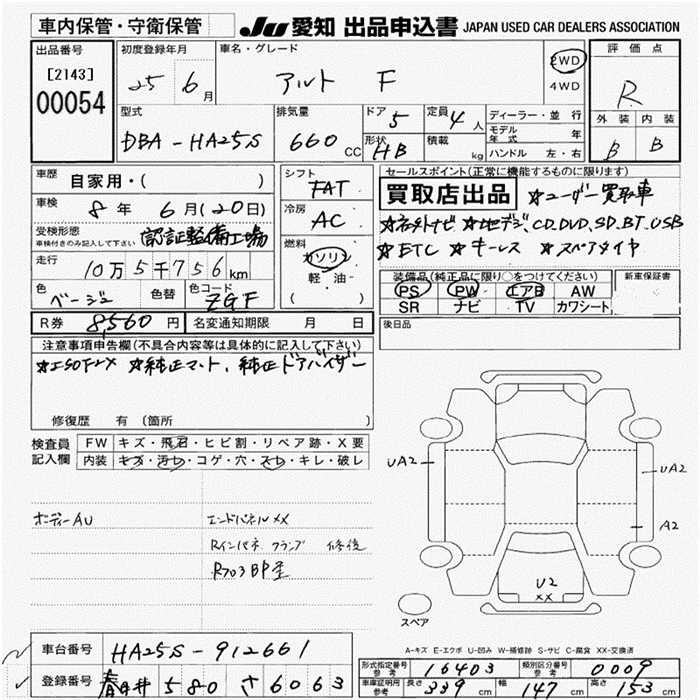 車内保管・守衛保管
JU 愛知 出品申込書 JAPAN USED CAR DEALERS ASSOCIATION
出品番号 [2143] 00054
初度登録年月 25 6月
車名・グレード アルト F
2WD
4WD
評価点 R
外装 B 内装 B
型式 DBA-HA25S
排気量 660 CC
ドア 5
形状 HB
定員 4人
積載 kg
ディーラー・並行
モデル年式 年
ハンドル 左・右
車歴 自家用・( )
車検 8年 6月(20日)
受検形態 認証整備工場
車検付きのみ記入して下さい
走行 10万5千756km
色 ベージュ 色替 色コード ZGF
シフト FAT
冷房 AC
燃料 ガソリン
軽・油
( )
セールスポイント(正常に機能するものに限ります)
買取店出品 ☆ユーザー買取車
☆社外ナビ ☆地デジ、CD、DVD、SD、BT、USB
☆ETC ☆キーレス ☆スペアタイヤ
装備品(純正品に限り○をつけてください) 新車保証書
PS PW エアB AW
SR ナビ TV カワシート
R券 8,560円 名変通知期限 月 日
後日品
注意事項申告欄(不具合内容等は具体的に記入して下さい)
☆純正マット、純正ドアバイザー
修復歴 有(箇所
検査員記入欄 FW キズ・飛石・ヒビ割・リペア跡・X要
内装 キズ・汚レ・コゲ・穴・スレ・キレ・破レ
ボデーAU エンドパネルXX
Rインパネ フランプ 修後
R703BP歪
UA2
UA2
A2
U2
XX
スペア
A-キズ E-エクボ U-凹み W-補修跡 S-サビ C-腐食 XX-交換済
車台番号 HA25S-912661
登録番号 春日井 580 さ 6063
形式指定番号 参考 16403 類別区分番号 参考 0009
車庫証明用参考 長さ 339cm 幅 147cm 高さ 153cm